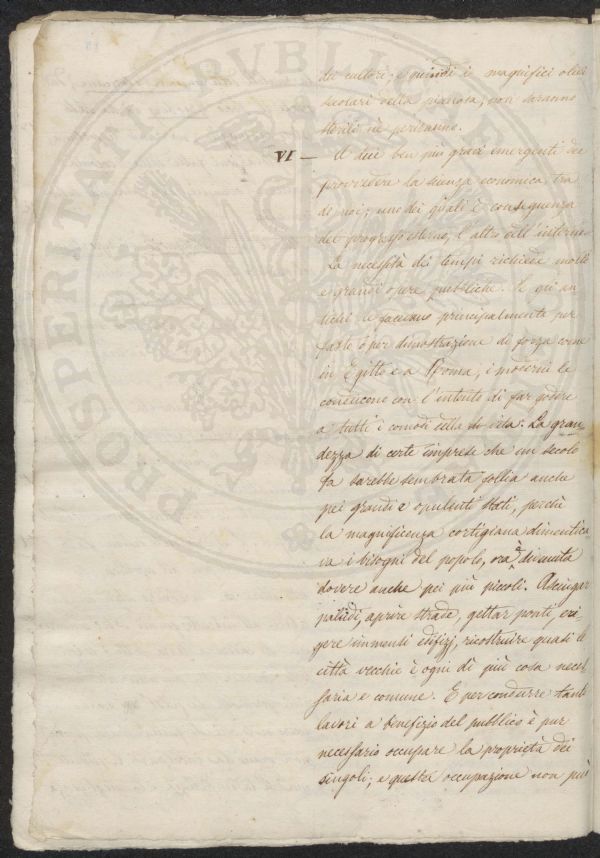 dei cultori; e quindi i magnifici olivi
secolari della pianosa, non saranno
sterili nè periranno.
VI — A due ben più gravi emergenti dee
provvedere la scienza economica tra
di noi; uno dei quali è conseguenza
del progresso esterno, l'altro dell'interno.
La necessità dei tempi richiede molte
e grandi opere pubbliche. Se gli an
tichi le facevano principalmente per
fasto o per dimostrazione di forza come
in Egitto e a Roma, i moderni le
conducono con l'intento di far godere
a tutti i comodi della vita. La gran
dezza di certe imprese che un secolo
fa sarebbe sembrata follia anche
pei grandi e opulenti stati, perchè
la magnificenza cortigiana dimentica
va i bisogni del popolo, ora è divenuta
dovere anche pei più piccoli. Asciugar
paludi, aprire strade, gettar ponti, eri
gere immensi edifizj, ricostruire quasi le
città vecchie è ogni dì più cosa neces
saria e comune. E per condurre tanti
lavori a benefizio del pubblico è pur
necessario occupare la proprietà dei
singoli; e questa occupazione non può
PROSPERITATI PUBLICAE